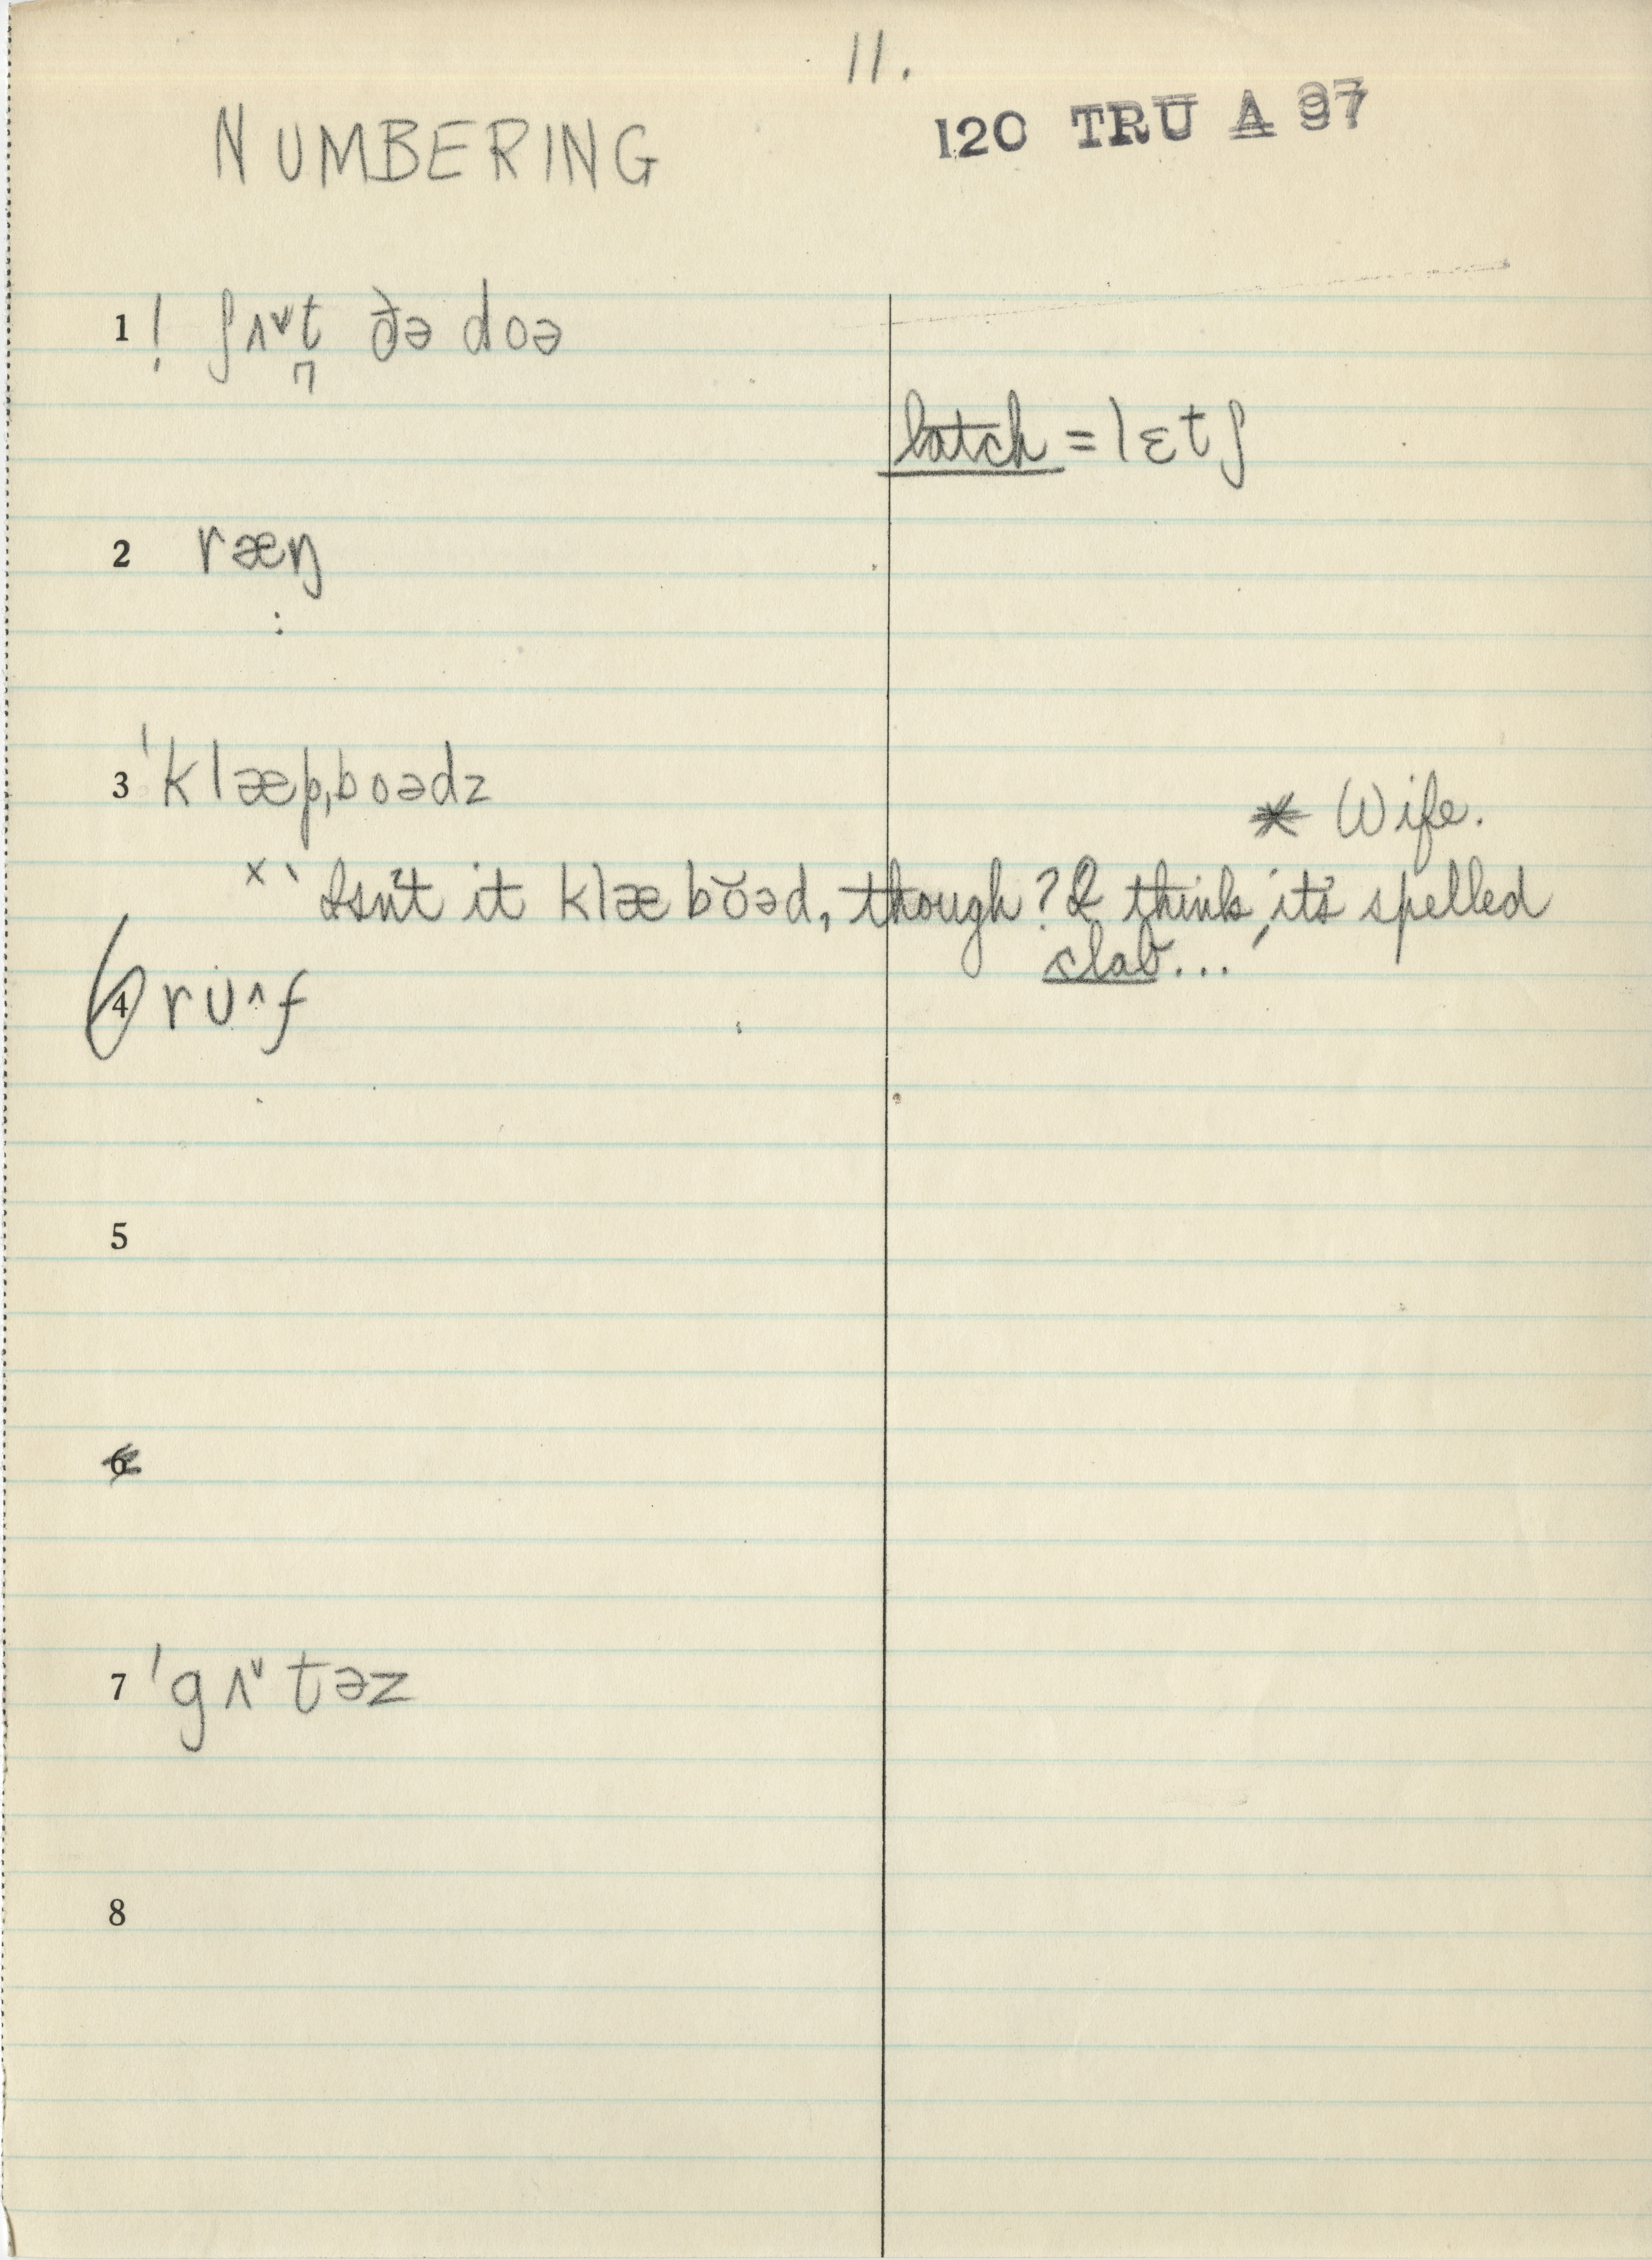 11.
120 TRU A 97
NUMBERING
1 ! ʃʌ˅t ðə doə
latch = lɛtʃ
2 ræŋ
3 ˈklæp,boədz
* Wife.
x ‵ Isn't it klæbŏəd, though? I think it's spelled
clab...′
6 4 rᴜ^f
5
6
7 ˈgʌ˅təz
8